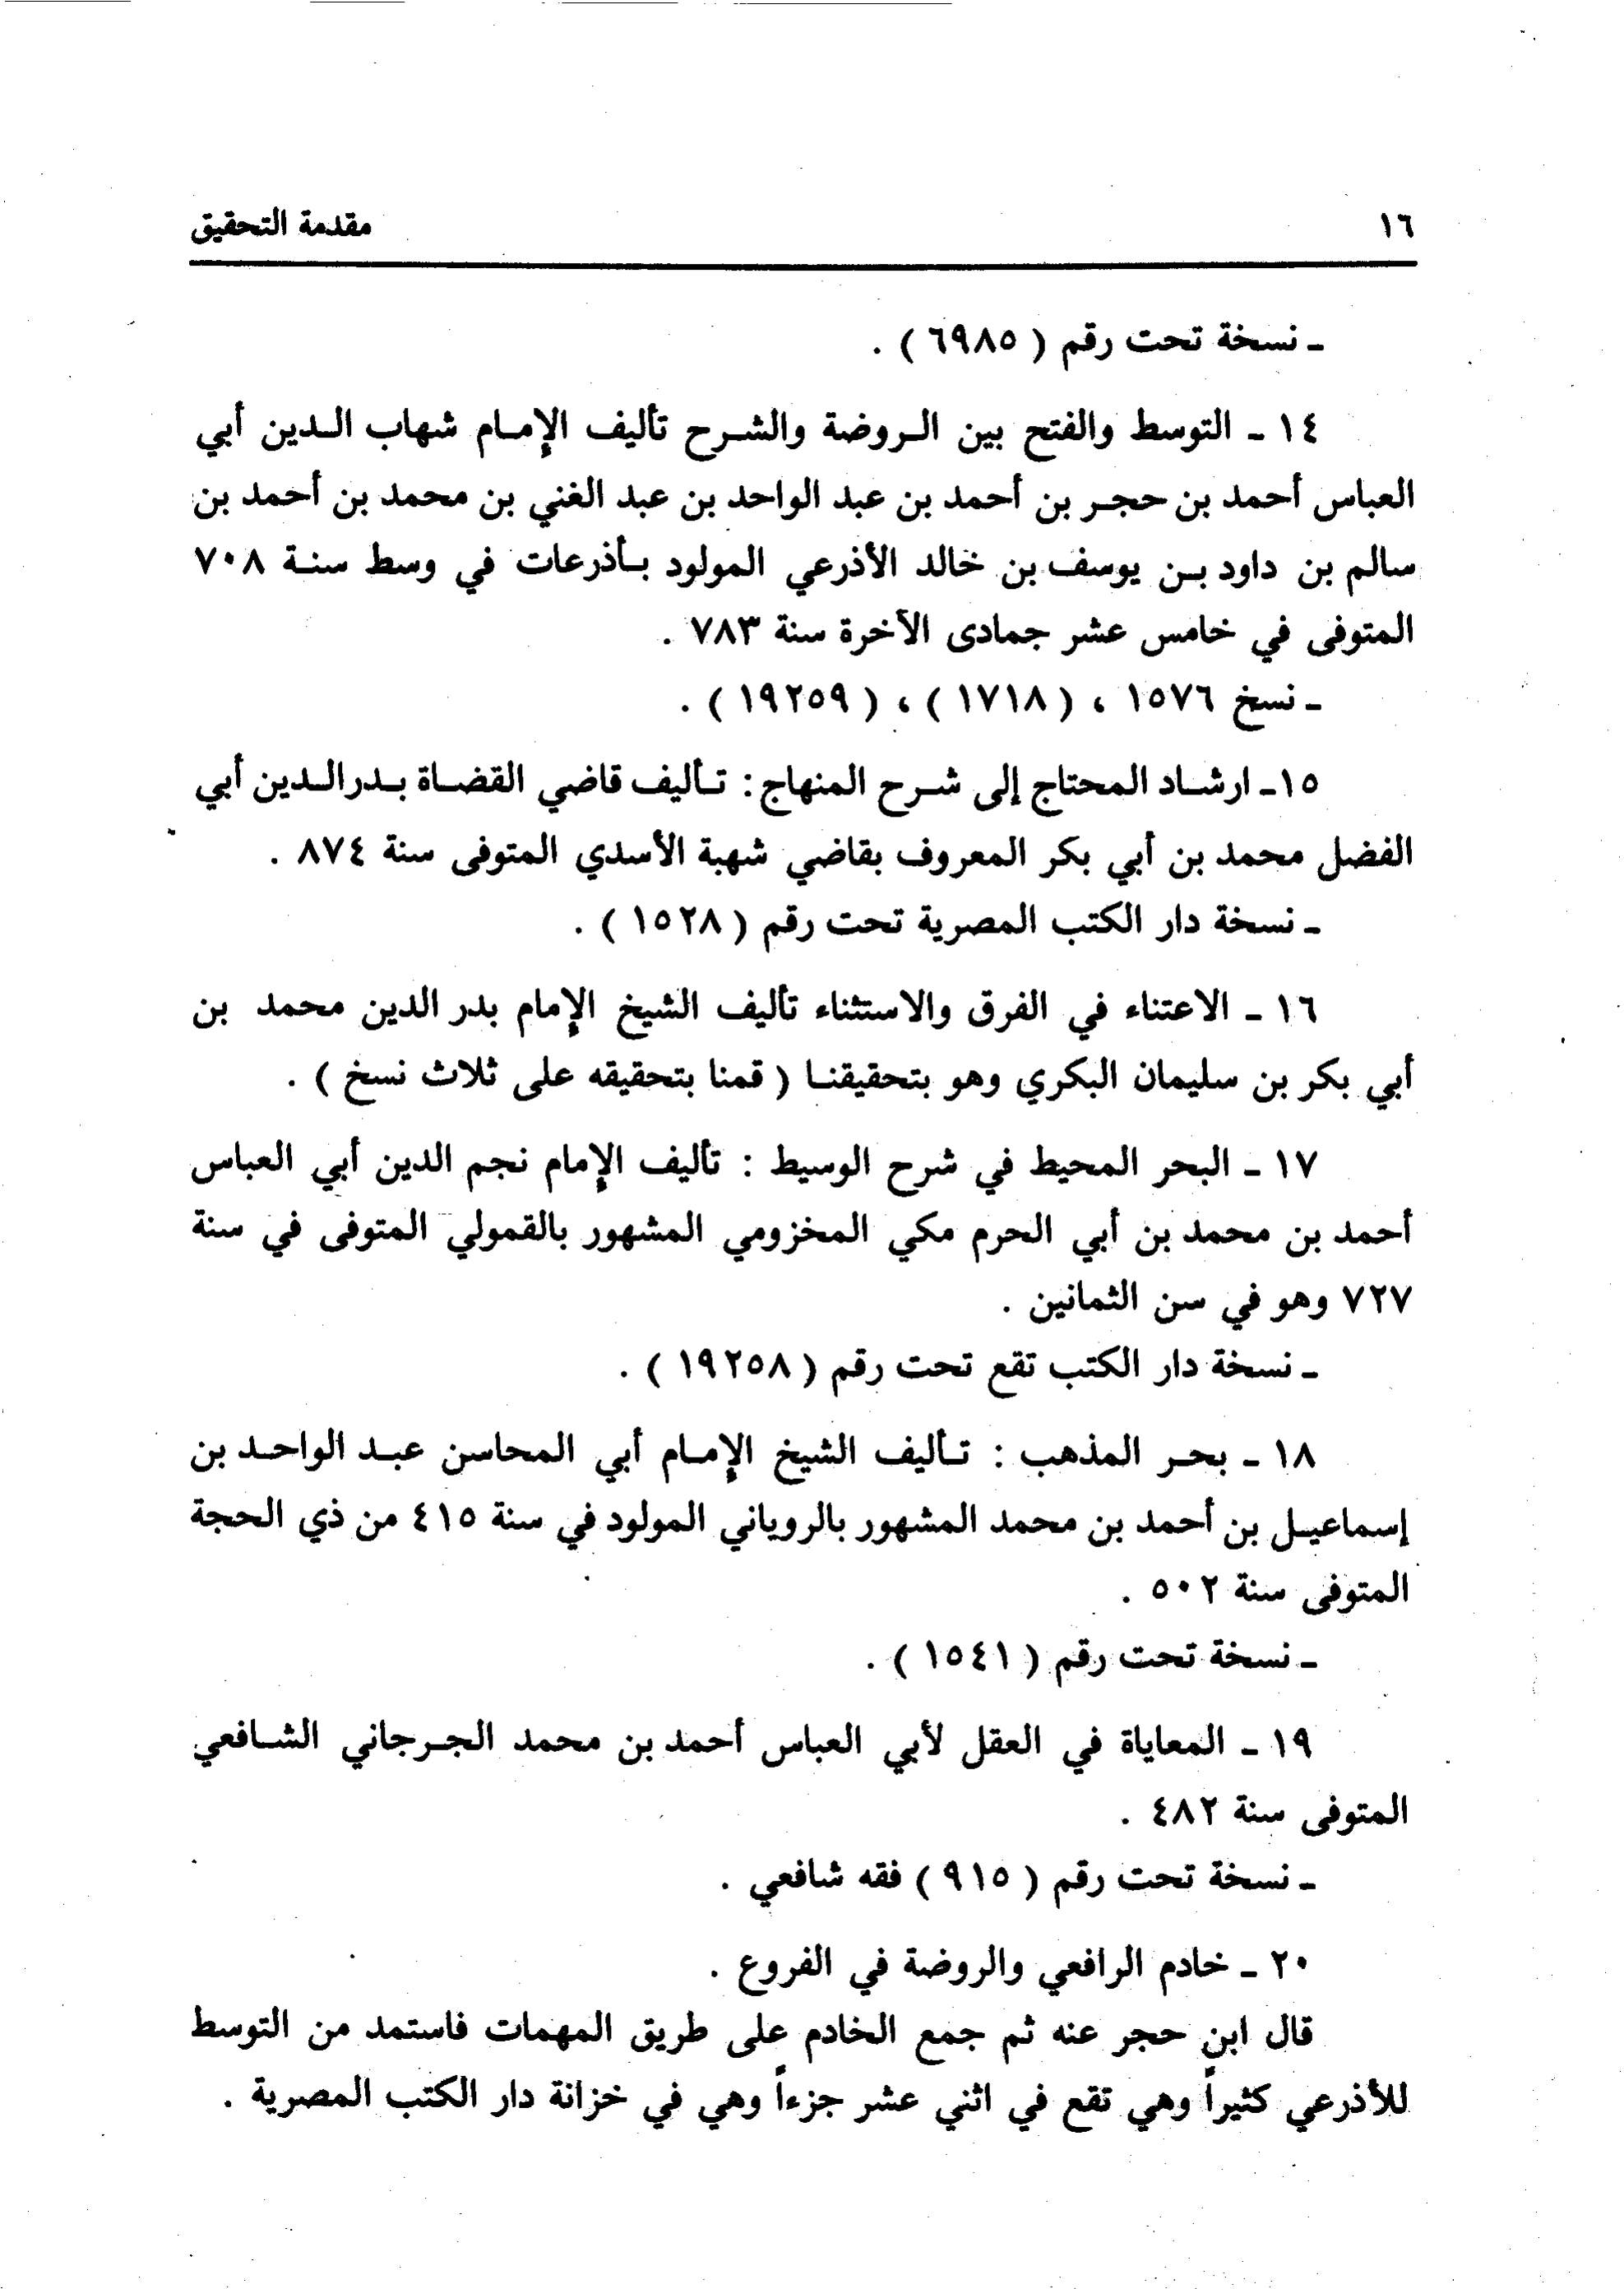 ١٦ مقدمة التحقيق
ـ نسخة تحت رقم ( ٦٩٨٥ ) .
١٤ ـ التوسط والفتح بين الروضة والشرح تأليف الإمام شهاب الدين أبي
العباس أحمد بن حجر بن أحمد بن عبد الواحد بن عبد الغني بن محمد بن أحمد بن
سالم بن داود بن يوسف بن خالد الأذرعي المولود بأذرعات في وسط سنة ٧٠٨
المتوفى في خامس عشر جمادى الآخرة سنة ٧٨٣ .
ـ نسخ ١٥٧٦ ، ( ١٧١٨ ) ، ( ١٩٢٥٩ ) .
١٥ـ ارشاد المحتاج إلى شرح المنهاج : تأليف قاضي القضاة بدرالدين أبي
الفضل محمد بن أبي بكر المعروف بقاضي شهبة الأسدي المتوفى سنة ٨٧٤ .
ـ نسخة دار الكتب المصرية تحت رقم ( ١٥٢٨ ) .
١٦ ـ الاعتناء في الفرق والاستثناء تأليف الشيخ الإمام بدر الدين محمد بن
أبي بكر بن سليمان البكري وهو بتحقيقنا ( قمنا بتحقيقه على ثلاث نسخ ) .
١٧ ـ البحر المحيط في شرح الوسيط : تأليف الإمام نجم الدين أبي العباس
أحمد بن محمد بن أبي الحرم مكي المخزومي المشهور بالقمولي المتوفى في سنة
٧٢٧ وهو في سن الثمانين .
ـ نسخة دار الكتب تقع تحت رقم ( ١٩٢٥٨ ) .
١٨ ـ بحر المذهب : تأليف الشيخ الإمام أبي المحاسن عبد الواحد بن
إسماعيل بن أحمد بن محمد المشهور بالروياني المولود في سنة ٤١٥ من ذي الحجة
المتوفى سنة ٥٠٢ .
ـ نسخة تحت رقم ( ١٥٤١ ) .
١٩ ـ المعاياة في العقل لأبي العباس أحمد بن محمد الجرجاني الشافعي
المتوفى سنة ٤٨٢ .
ـ نسخة تحت رقم ( ٩١٥ ) فقه شافعي .
٢٠ ـ خادم الرافعي والروضة في الفروع .
قال ابن حجر عنه ثم جمع الخادم على طريق المهمات فاستمد من التوسط
للأذرعي كثيراً وهي تقع في اثني عشر جزءاً وهي في خزانة دار الكتب المصرية .